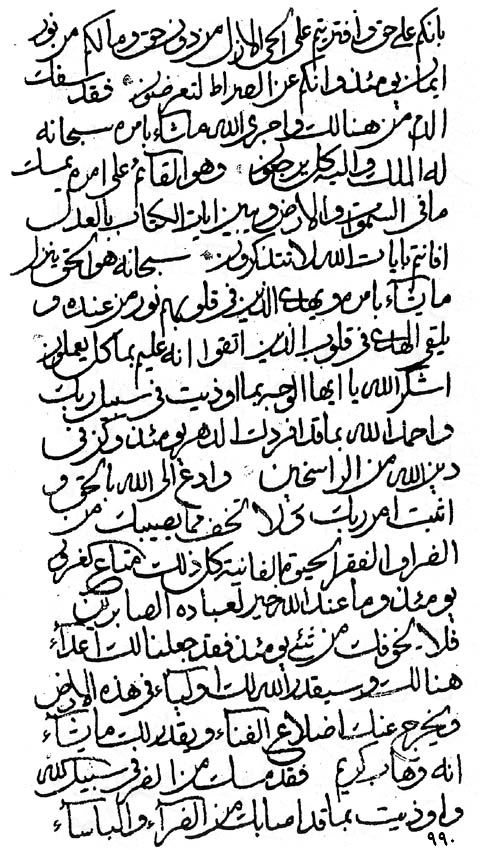 بانكم على حق وافتريتم على الحى الازل من دون حق وما لكم من نور
ايمان يومئذ وانكم عن الصراط لتعرضون فقد سفكت
الدم من هنالك واجرى الله ما شاء بامره سبحانه
له الملك واليه كل يرجعون وهو القائم على امره يمسك
ما فى السموات والارض ويبين ايات الكتاب بالعدل
افانتم بايات الله لا تتذكرون سبحانه هو الحق ينزل
ما يشاء بامره ويهدى الذين فى قلوبهم نور من عنده و
يلقى الهدى فى قلوب الذين اتقوا انه عليم بما كل يعملون
اشكر الله يا ايها الوحيد بما اوذيت فى سبيل ربك
واحمد الله بما قد افردك الدهر يومئذ وكن فى
دين الله من الراسخين وادع الى الله بالحق و
اثبت امر ربك ولا تخف مما يصيبك من
الضر او الفقر الحيوة الفانية كل ذلك متاع
يومئذ وما عند الله خير لعباده الصابرين
فلا يخوفك من شئ يومئذ فقد جعلنا لك اعداء
هنالك وسيقدر الله لك اولياء فى هذه الارض
ويخرج عنك اضلاع الفناء ويقدر لك ما يشاء
انه وهاب كريم فقد مسك من الضر فى سبيل الله
واوذيت بما قد اصابك من الضراء والباساء
٩٩٠